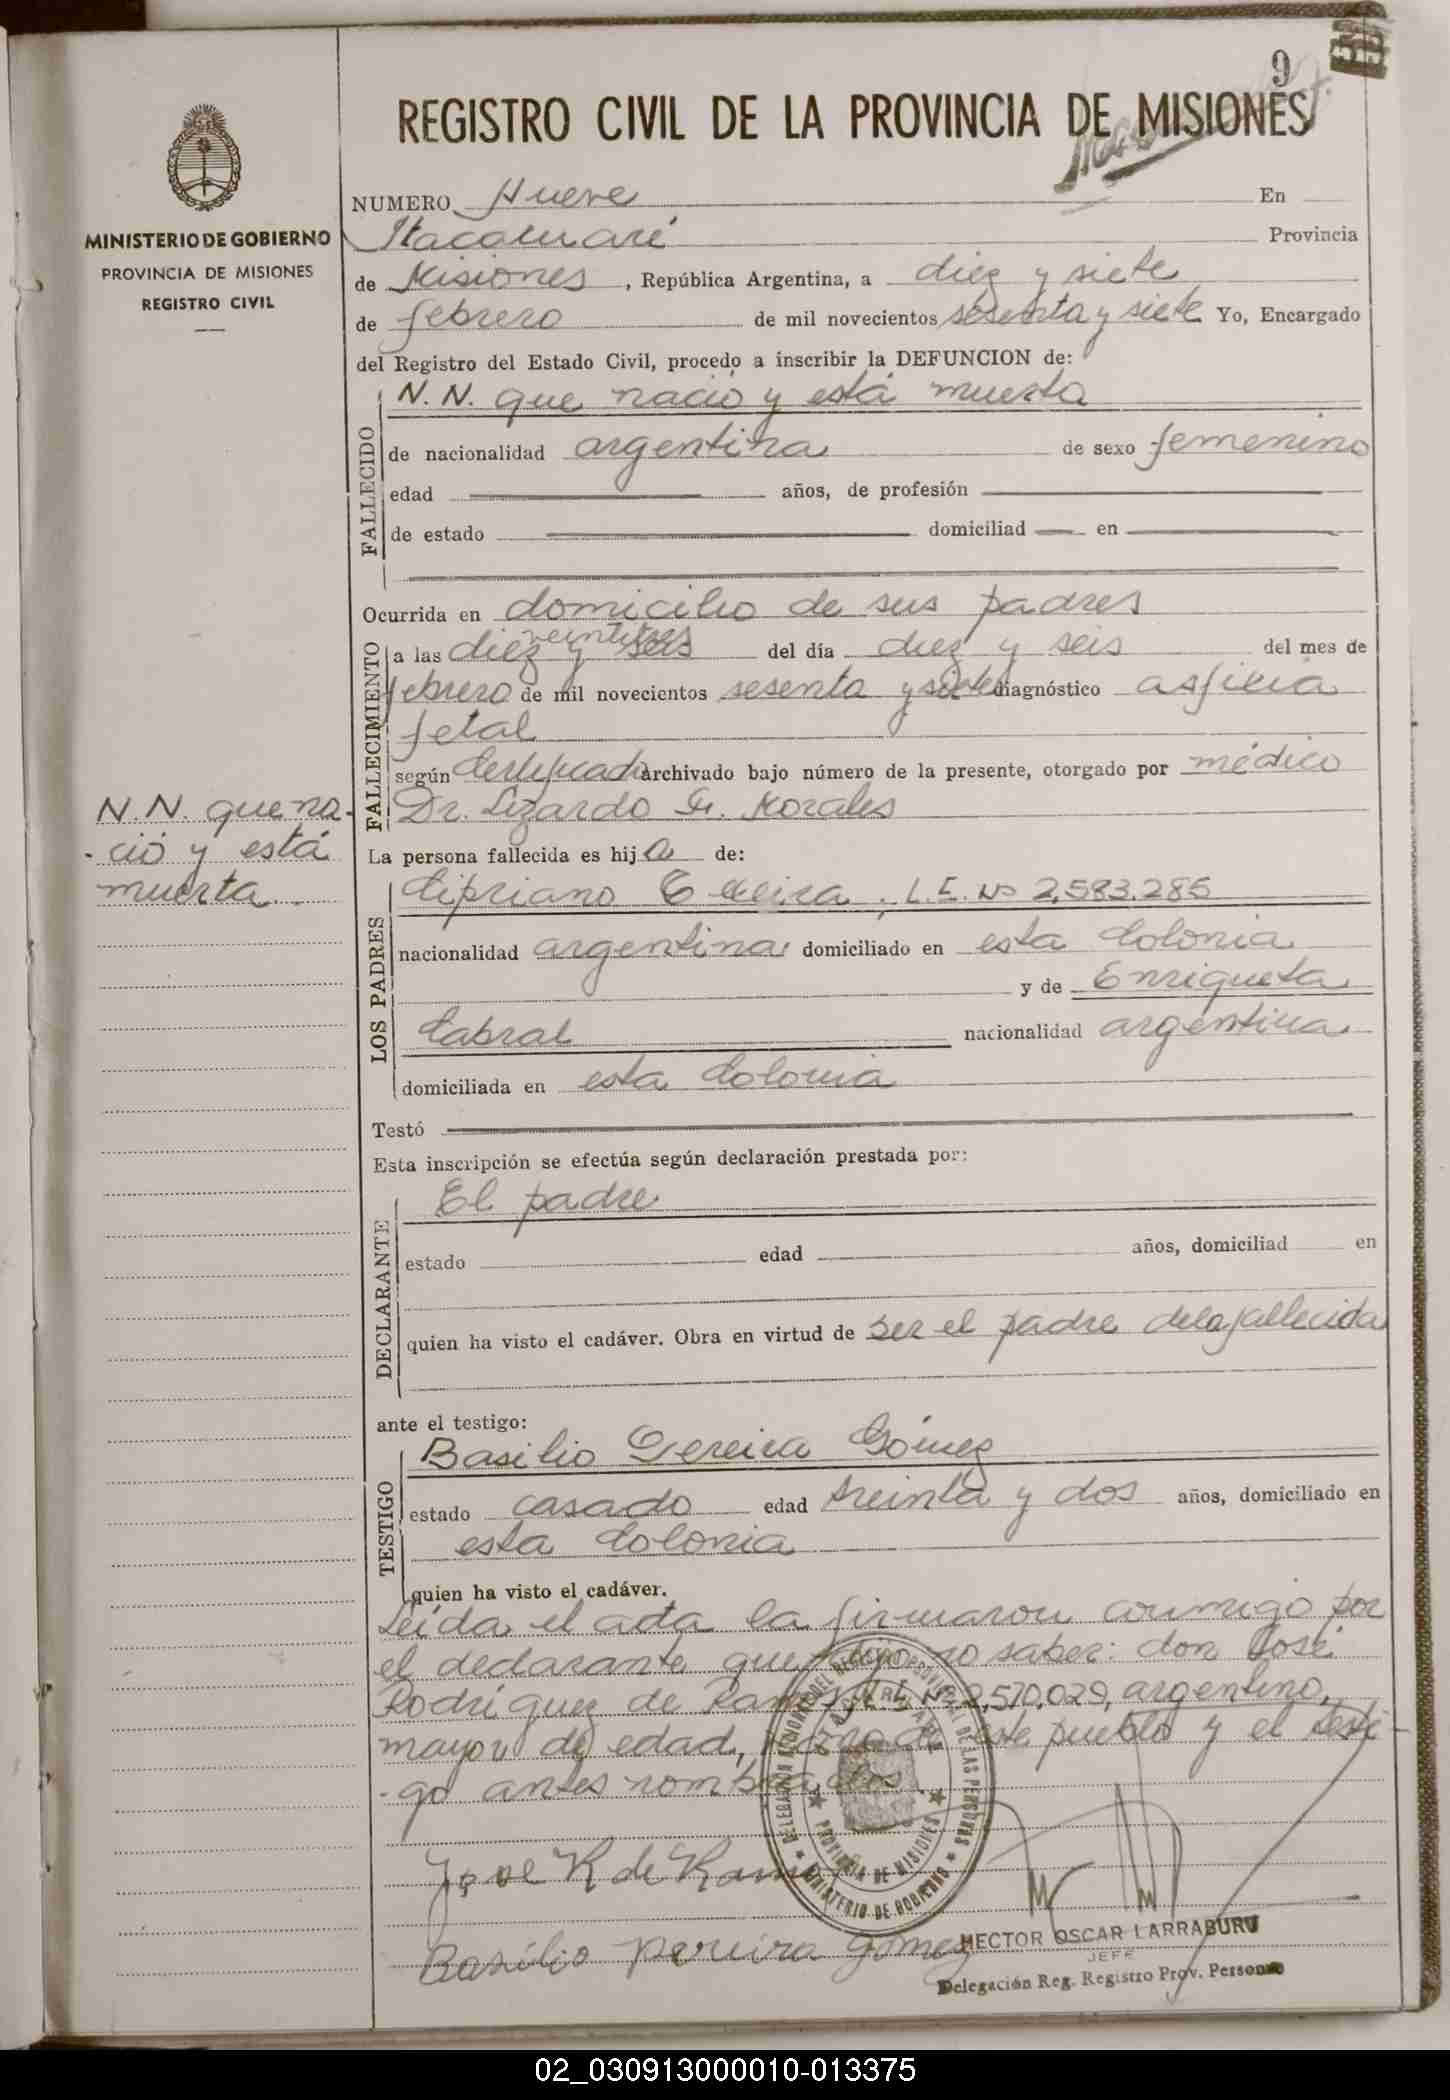 9
REGISTRO CIVIL DE LA PROVINCIA DE MISIONES
MINISTERIO DE GOBIERNO
PROVINCIA DE MISIONES
REGISTRO CIVIL
NUMERO Nueve En
Itacaruaré Provincia
de Misiones, República Argentina, a diez y siete
de febrero de mil novecientos sesenta y siete Yo, Encargado
del Registro del Estado Civil, procedo a inscribir la DEFUNCION de:
FALLECIDO
N.N. que nació y está muerta
de nacionalidad argentina de sexo femenino
edad años, de profesión
de estado domiciliad en
FALLECIMIENTO
Ocurrida en domicilio de sus padres
veintitres
a las diez y seis del día diez y seis del mes de
febrero de mil novecientos sesenta y siete diagnóstico asfixia
fetal
según certificado archivado bajo número de la presente, otorgado por médico
Dr. Lizardo G. Morales
N.N. que na-
-ció y está
muerta
La persona fallecida es hija de:
LOS PADRES
Cipriano L.E. Nº 2,583.285
nacionalidad argentina domiciliado en esta Colonia
y de Enriqueta
Cabral nacionalidad argentina
domiciliada en esta Colonia
Testó
Esta inscripción se efectúa según declaración prestada por:
DECLARANTE
El padre
estado edad años, domiciliad en
quien ha visto el cadáver. Obra en virtud de ser el padre de la fallecida
ante el testigo:
TESTIGO
Basilio Pereira Gómez
estado casado edad treinta y dos años, domiciliado en
esta Colonia
quien ha visto el cadáver.
Leída el acta la firmaron conmigo por
el declarante que dijo no saber: don José
Rodríguez de Ramos, L.E. Nº 2,570,029, argentino,
mayor de edad, vecino de este pueblo y el testi-
-go antes nombrados
DELEGACION REGIONAL DEL REGISTRO PROVINCIAL DE LAS PERSONAS
ITACARUARE
PROVINCIA DE MISIONES
MINISTERIO DE GOBIERNO
Jose R de Ramos
Basilio Pereira Gomez
HECTOR OSCAR LARRABURU
JEFE
Delegación Reg. Registro Prov. Personas
02_030913000010-013375